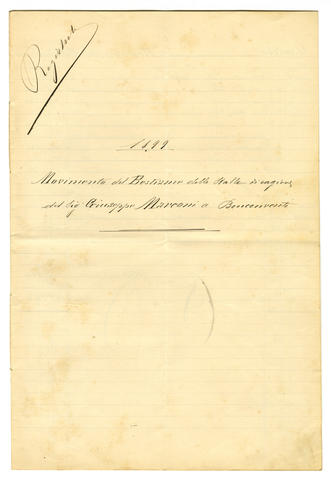 Registrato
1899
Movimento del Bestiame delle Stalle di ragione
del Sig Giuseppe Marconi a Bencenvento